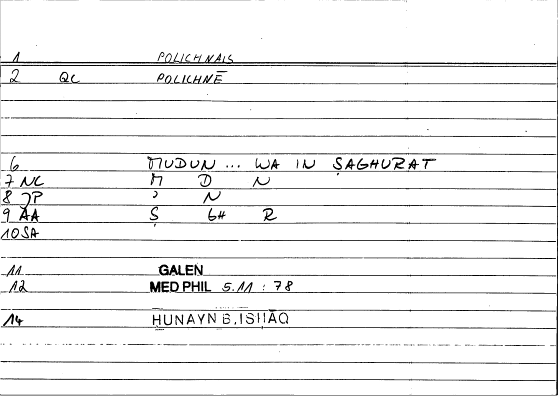 1 POLICHNAIS
2 QC POLICHNĒ
6 MUDUN ... WA IN ṢAGHURAT
7 NC M D N
8 JP ' N
9 AA Ṣ GH R
10 SA
11 GALEN
12 MED PHIL 5.11 : 78
14 HUNAYN B. ISHĀQ